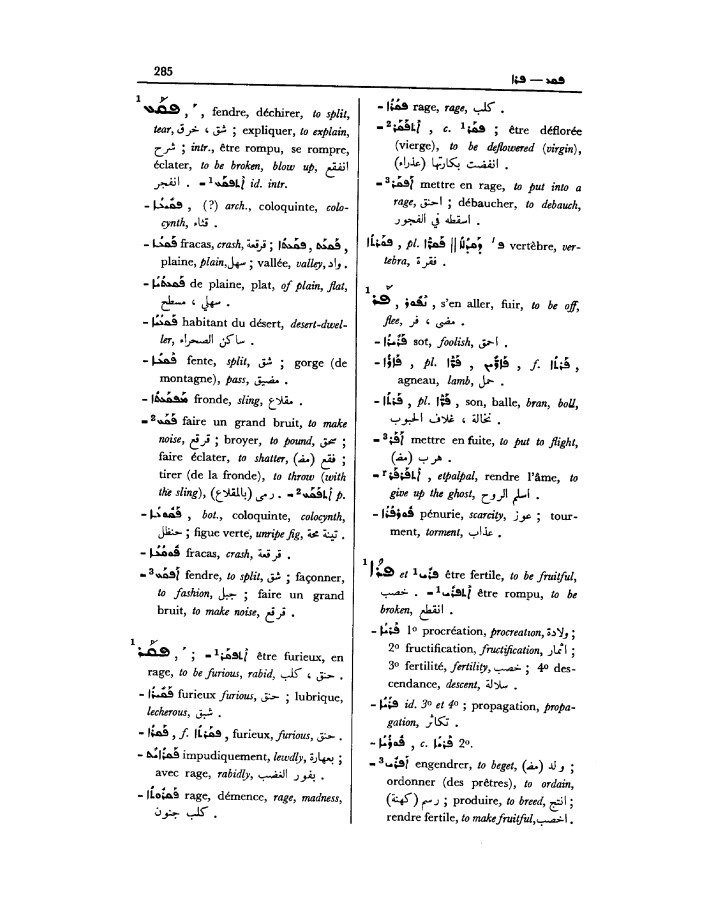 285 ܦܩܥ — ܦܪܐ
1 ܦܩܥ , ʹ , fendre, déchirer, to split,
tear, شق ، خرق ; expliquer, to explain,
شرح ; intr., être rompu, se rompre,
éclater, to be broken, blow up, انفقع
انفجر . = ܐܬܦܩܥ1 id. intr.
- , (?) arch., coloquinte, colo-
cynth, قثاء .
- fracas, crash, قرقعة ; ,
plaine, plain, سهل ; vallée, valley, واد .
- de plaine, plat, of plain, flat,
سهلي ، مسطح .
- habitant du désert, desert-dwel-
ler, ساكن الصحراء .
- fente, split, شق ; gorge (de
montagne), pass, مضيق .
- fronde, sling, مقلاع .
= ܦܩܥ2 faire un grand bruit, to make
noise, قرقع ; broyer, to pound, سحق ;
faire éclater, to shatter, فقع (مض) ;
tirer (de la fronde), to throw (with
the sling), رمى (بالمقلاع) . = ܐܬܦܩܥ2 p.
- , bot., coloquinte, colocynth,
حنظل ; figue verte, unripe fig, تينة فجة .
- fracas, crash, قرقعة .
= ܐܦܩܥ3 fendre, to split, شق ; façonner,
to fashion, جبل ; faire un grand
bruit, to make noise, قرقع .
1 ܦܩܪ , ʹ ; = ܐܬܦܩܪ1 être furieux, en
rage, to be furious, rabid, حنق ، كلب .
- furieux furious, حنق ; lubrique,
lecherous, شبق .
- ܦܩܪܐ , f. ܦܩܪܬܐ , furieux, furious, حنق .
- impudiquement, lewdly, بعهارة ;
avec rage, rabidly, بفور الغضب .
- rage, démence, rage, madness,
كلب جنون .
- ܦܩܪܐ rage, rage, كلب .
= ܐܬܦܩܪ2 , c. ܦܩܪ1 ; être déflorée
(vierge), to be deflowered (virgin),
انفضت بكارتها (عذراء) .
= ܐܦܩܪ3 mettre en rage, to put into a
rage, احنق ; débaucher, to debauch,
اسقطه في الفجور .
ܦܩܪܬܐ , pl. ܦܩܪܐ || vertèbre, ver-
tebra, فقرة .
1 ܦܪ , ܢܦܘܪ , s'en aller, fuir, to be off,
flee, مضى ، فر .
- sot, foolish, احمق .
- ܦܐܪܐ , pl. , f. ܦܪܬܐ ,
agneau, lamb, حمل .
- ܦܪܬܐ , pl. ܦܪܐ , son, balle, bran, boll,
نخالة ، غلاف الحبوب .
= ܐܦܪ3 mettre en fuite, to put to flight,
هرب (مض) .
= ܐܬܦܪܦܪr , etpalpal, rendre l'âme, to
give up the ghost, اسلم الروح .
- pénurie, scarcity, عوز ; tour-
ment, torment, عذاب .
1 ܦܪܐ et ܦܪܝ1 être fertile, to be fruitful,
خصب . = ܐܬܦܪܝ1 être rompu, to be
broken, انقطع .
- ܦܪܝܐ 1º procréation, procreation, ولادة ;
2º fructification, fructification, اثمار ;
3º fertility, fertility, خصب ; 4º des-
cendance, descent, سلالة .
- id. 3º et 4º ; propagation, propa-
gation, تكاثر .
- , c. ܦܪܝܐ 2º.
= ܐܦܪܝ3 engendrer, to beget, ولد (مض) ;
ordonner (des prêtres), to ordain,
رسم (كهنة) ; produire, to breed, انتج ;
rendre fertile, to make fruitful, اخصب .